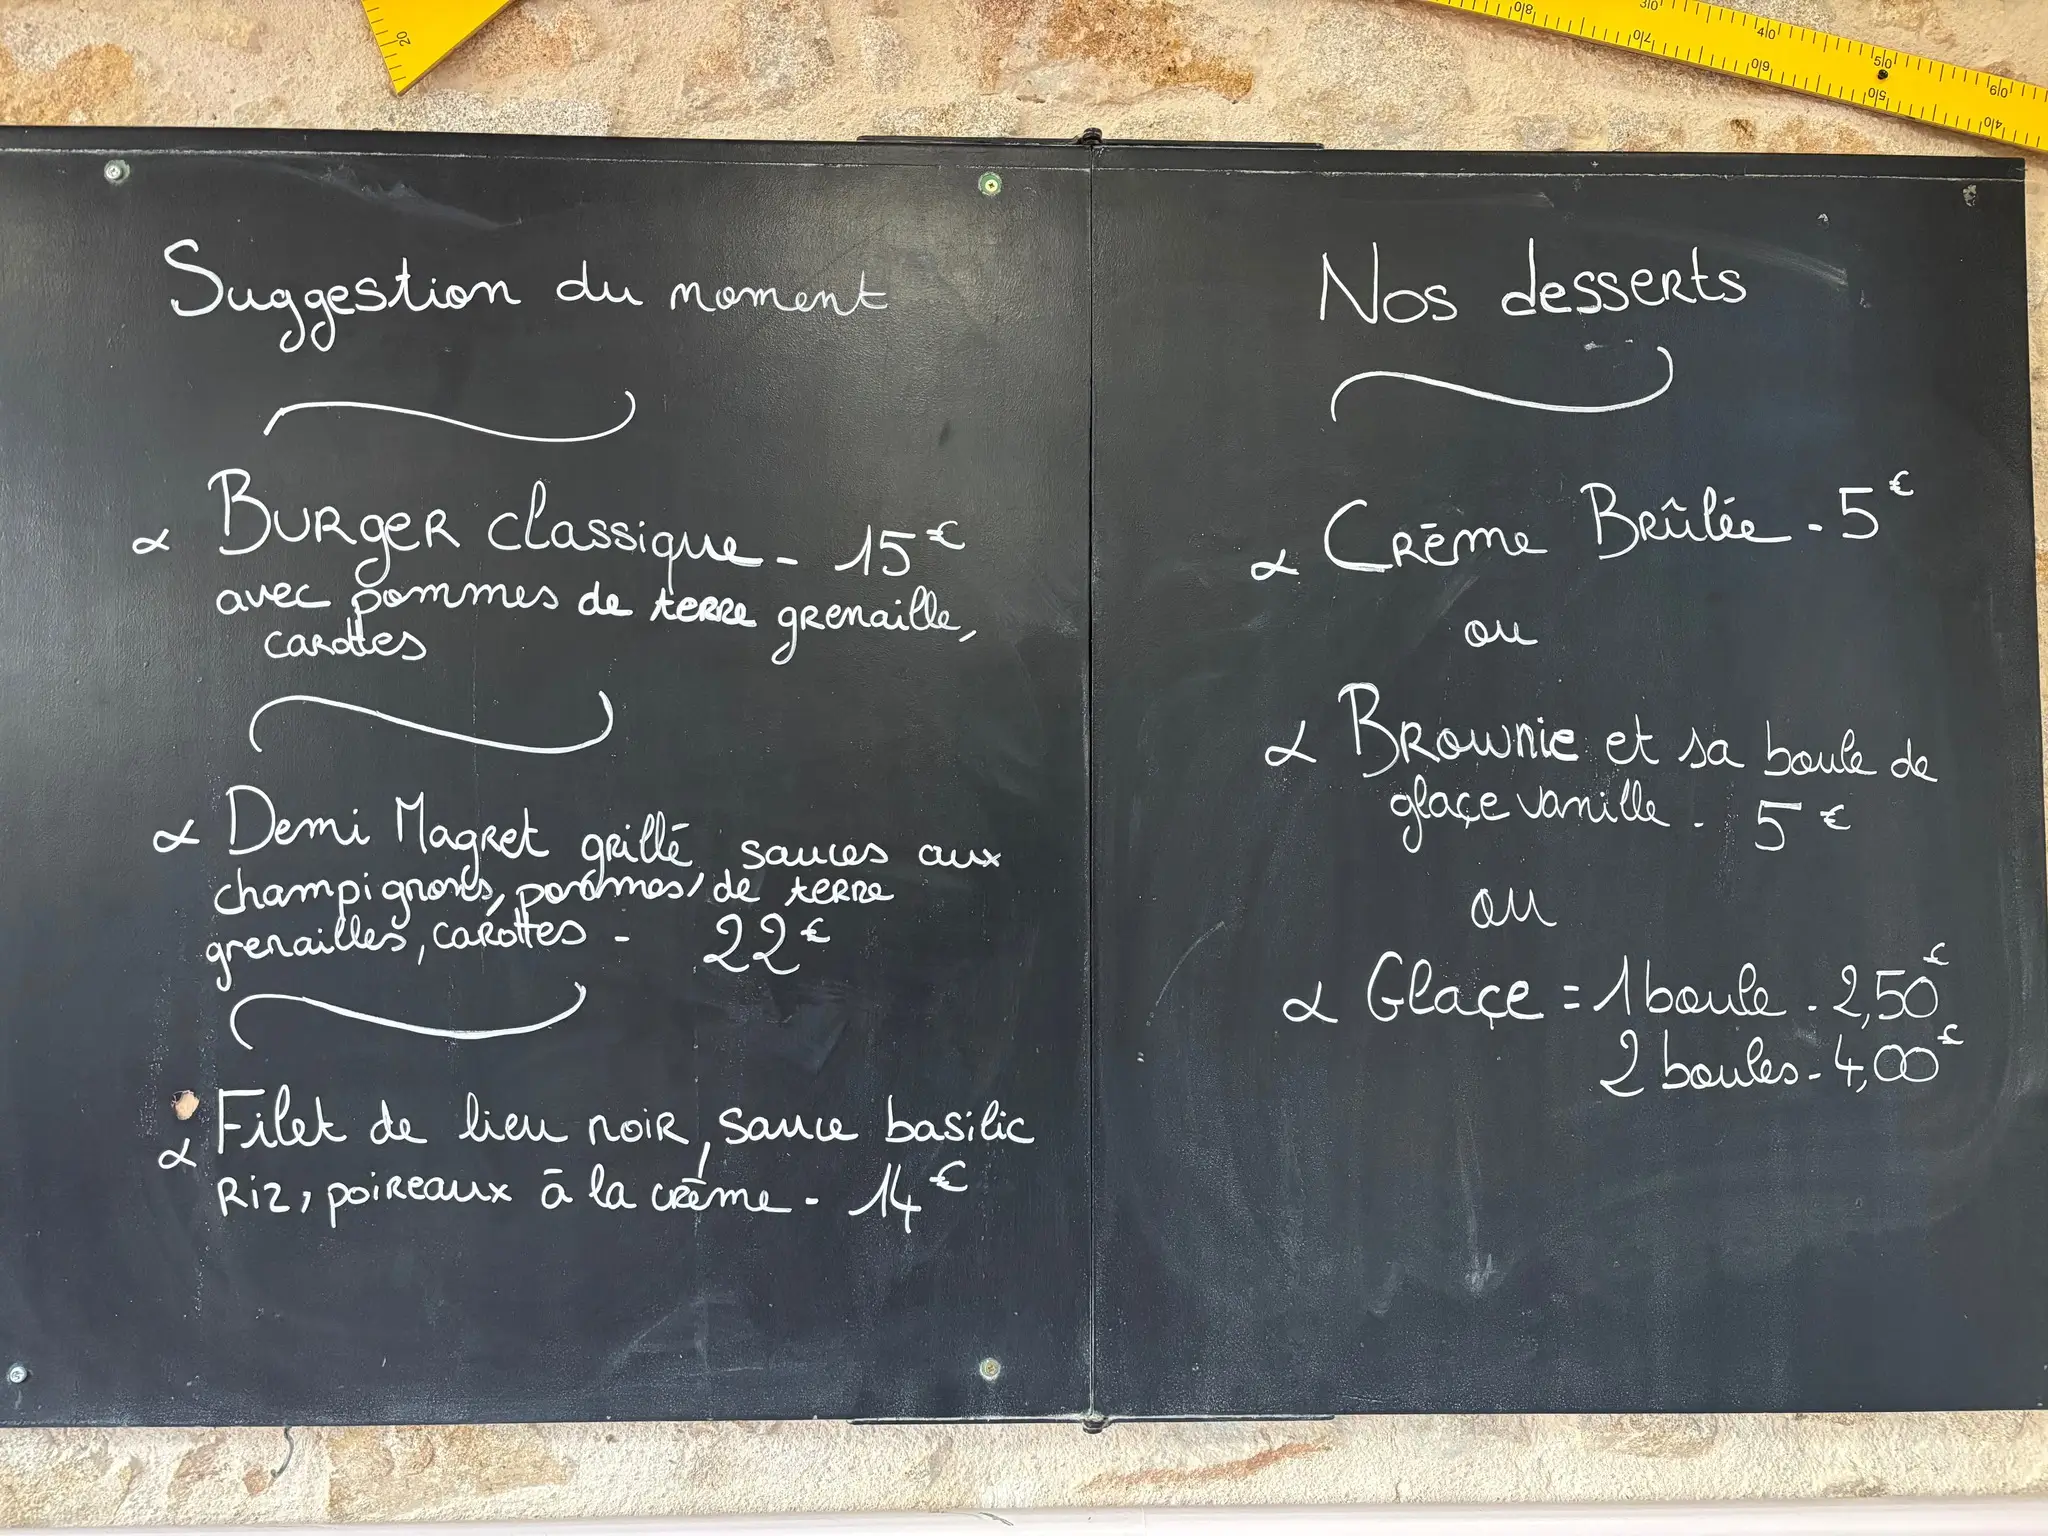 Suggestion du moment
∝ Burger classique - 15€
avec pommes de terre grenaille,
carottes
∝ Demi Magret grillé, sauces aux
champignons, pommes, de terre
grenailles, carottes - 22€
∝ Filet de lieu noir, sauce basilic
Riz, poireaux à la crème - 14€
Nos desserts
∝ Crème Brûlée - 5€
ou
∝ Brownie et sa boule de
glaçe vanille - 5€
ou
∝ Glaçe = 1 boule - 2,50€
2 boules - 4,00€